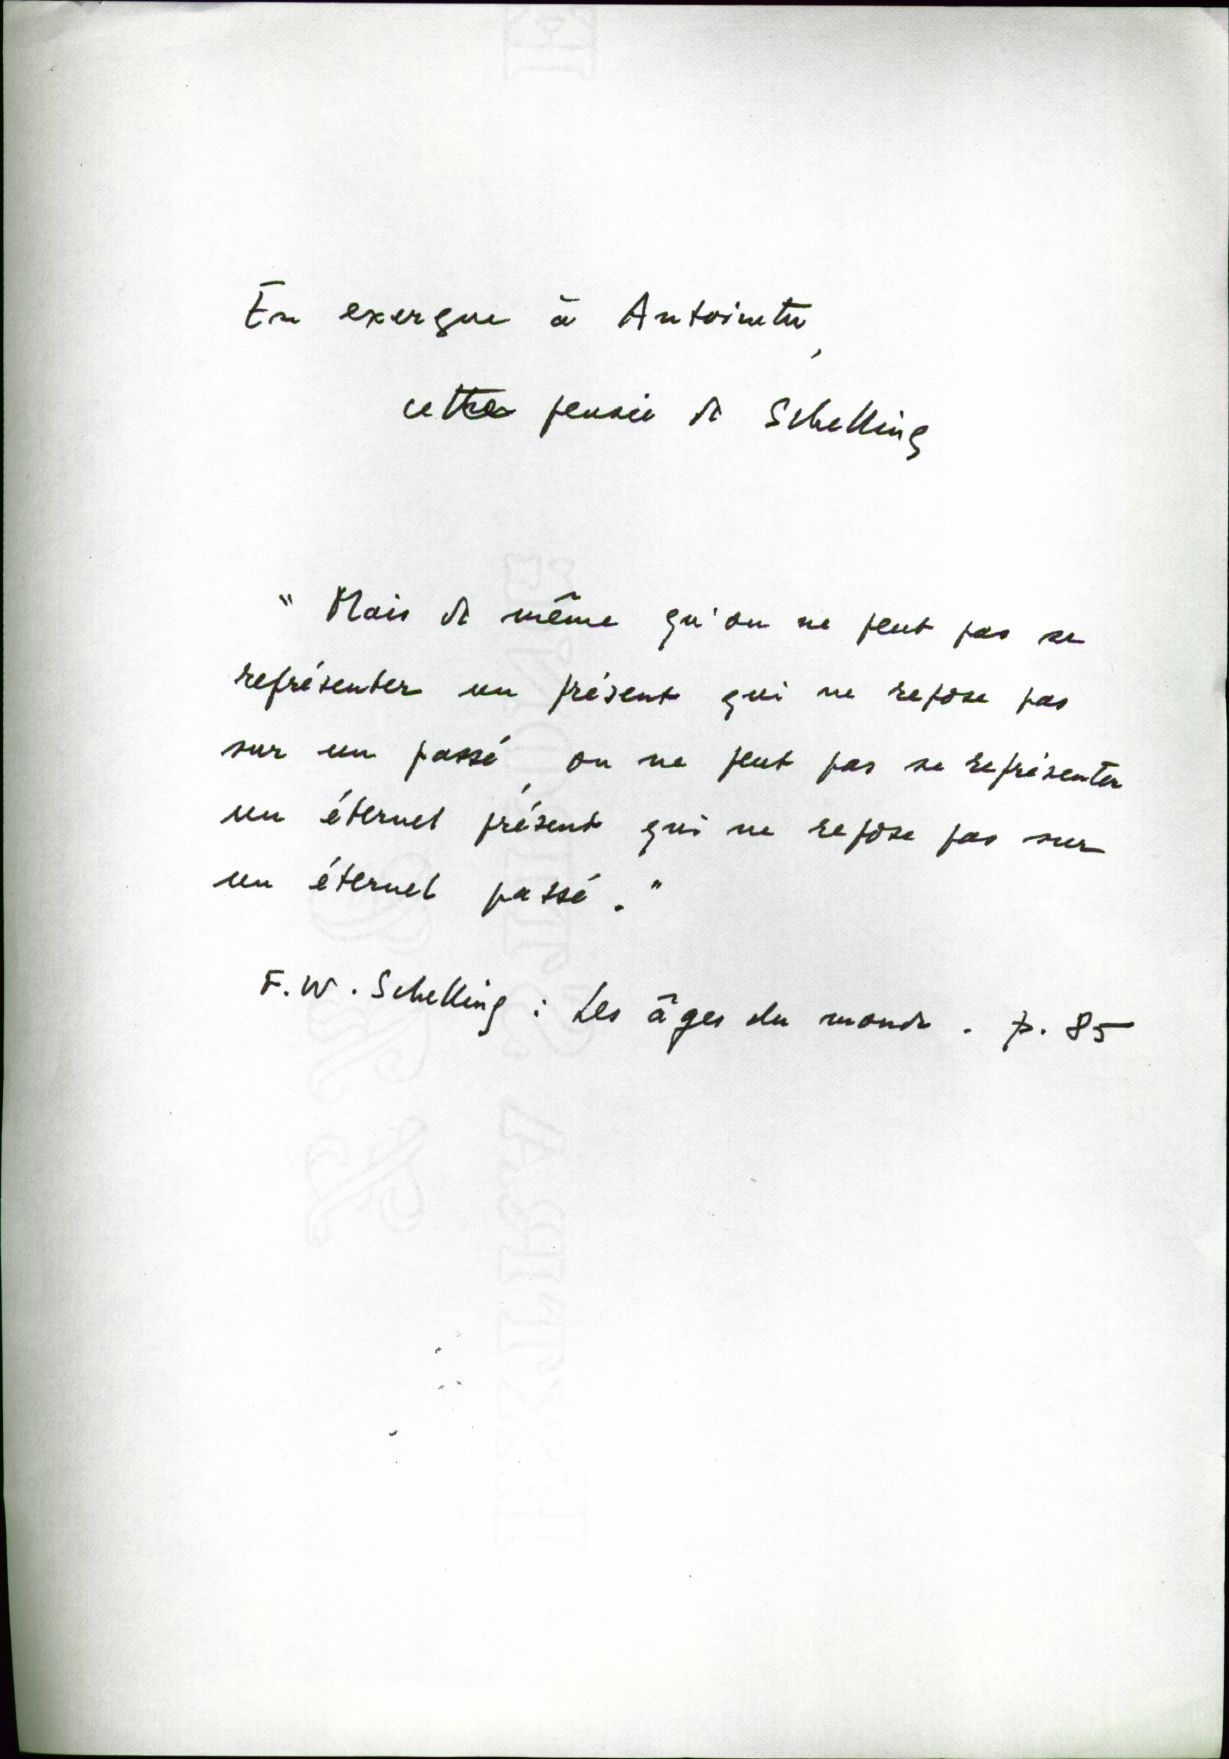 En exergue à Antoinette,
cette pensée de Schelling
" Mais de même qu'on ne peut pas se
représenter un présent qui ne repose pas
sur un passé, on ne peut pas se représenter
un éternel présent qui ne repose pas sur
un éternel passé. "
F. W. Schelling : Les âges du monde. p. 85